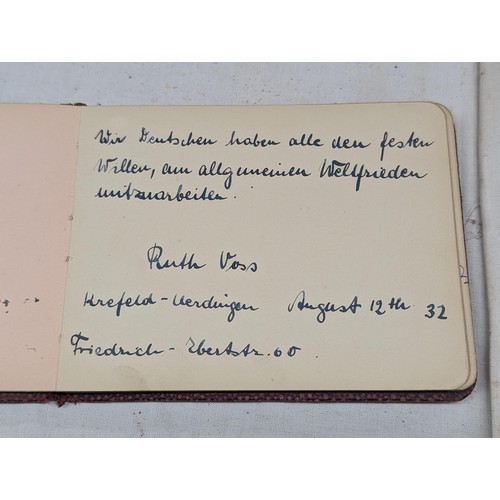 Wir Deutschen haben alle den festen
Willen, am allgemeinen Weltfrieden
mitzuarbeiten.
Ruth Voss
Krefeld-Uerdingen August 12th 32
Friedrich-Ebertstr. 60